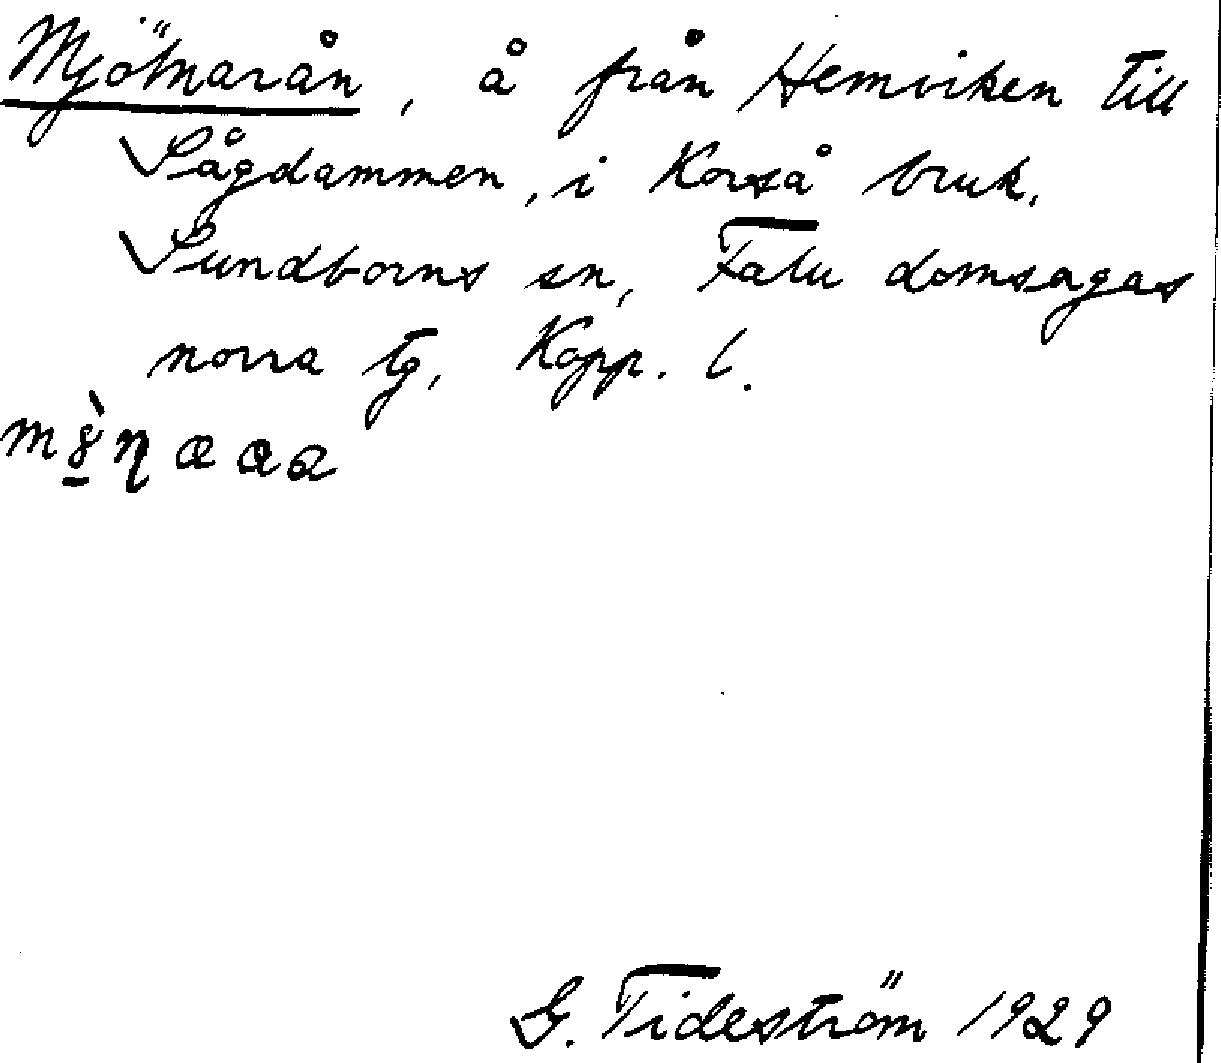 Mjölnarån, å från Hemviken till
Sågdammen, i Korså bruk.
Sundborns sn, Falu domsagas
norra tg, Kopp. l.
G. Tideström 1929